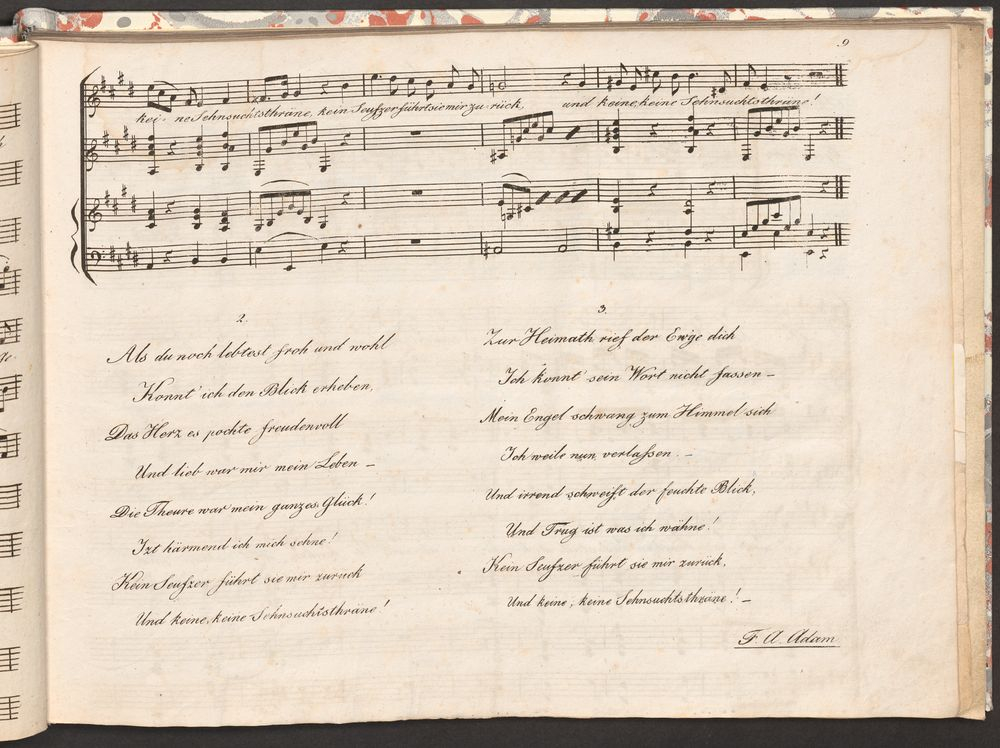 9
kei - ne Sehnsuchtsthräne, kein Seufzer führt sie mir zu - rück, und keine, keine Sehnsuchtsthräne!
2.
Als du noch lebtest froh und wohl
Konnt' ich den Blick erheben,
Das Herz es pochte freudenvoll
Und lieb war mir mein Leben –
Die Theure war mein ganzes Glück!
Izt härmend ich mich sehne!
Kein Seufzer führt sie mir zurück
Und keine, keine Sehnsuchtsthräne!
3.
Zur Heimath rief der Ewge dich
Ich konnt' sein Wort nicht fassen –
Mein Engel schwang zum Himmel sich
Ich weile nun verlassen. –
Und irrend schweift der feuchte Blick,
Und Trug ist was ich wähne!
Kein Seufzer führt sie mir zurück,
Und keine, keine Sehnsuchtsthräne! –
F. A. Adam